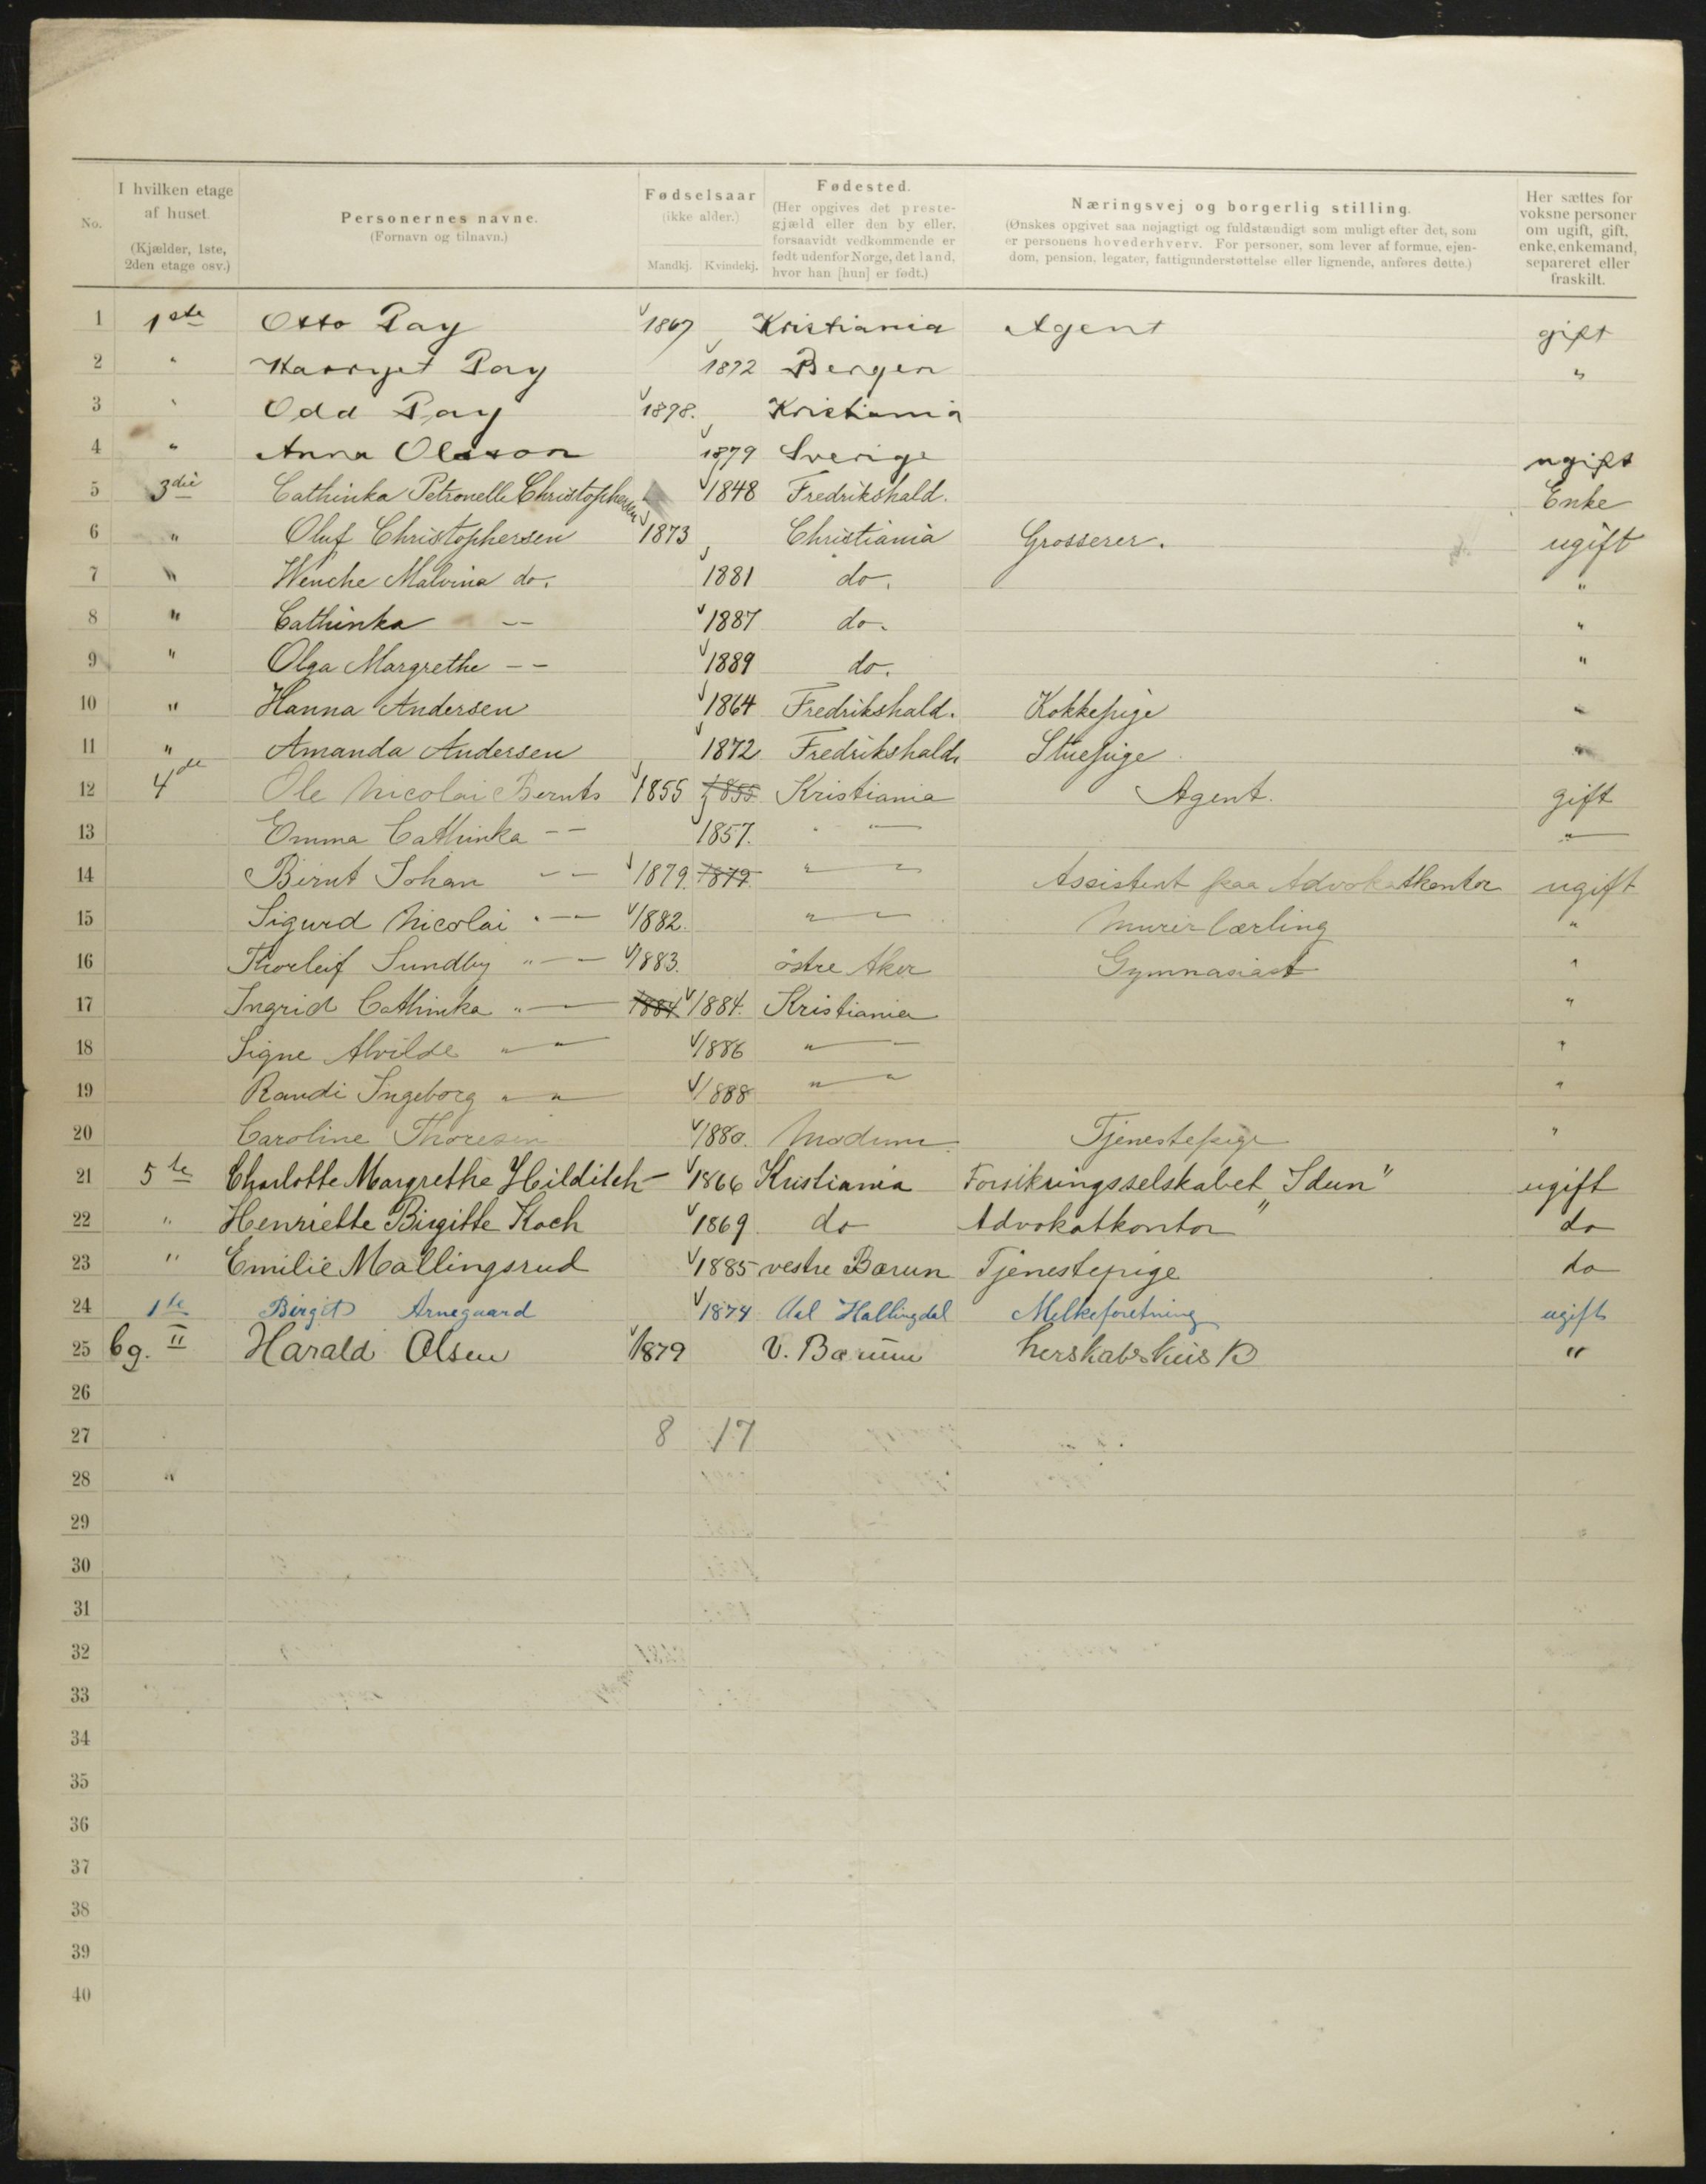 No.
I hvilken etage af huset. (Kjælder, 1ste, 2den etage osv.)
Personernes navne. (Fornavn og tilnavn.)
Fødselsaar (ikke alder.) Mandkj. Kvindekj.
Fødested. (Her opgives det prestegjæld eller den by eller, forsaavidt vedkommende er født udenfor Norge, det land, hvor han [hun] er født.)
Næringsvej og borgerlig stilling. (Ønskes opgivet saa nøjagtigt og fuldstændigt som muligt efter det, som er personens hovederhverv. For personer, som lever af formue, ejendom, pension, legater, fattigunderstøttelse eller lignende, anføres dette.)
Her sættes for voksne personer om ugift, gift, enke, enkemand, separeret eller fraskilt.
1 1ste Otto Pay 1867 Kristiania Agent gift
2 " Pay 1872 Bergen "
3 " Odd Pay 1898. Kristiania
4 " Anna Olsson 1879 Sverige ugift
5 3die Cathinka Petronelle Christophersen 1848 Fredrikshald. Enke
6 " Oluf Christophersen 1873 Christiania Grosserer. ugift
7 " Wenche Malvina do. 1881 do. "
8 " Cathinka -- 1887 do. "
9 " Olga Margrethe -- 1889 do. "
10 " Hanna Andersen 1864 Fredrikshald. Kokkepige "
11 " Amanda Andersen 1872 Fredrikshald. Stuepige "
12 4de Ole Nicolai Bernts 1855 1855 Kristiania Agent. gift
13 Emma Cathinka -- 1857. " — "
14 Bernt Johan -- 1879. 1879. " " Assistent paa Advokatkontor ugift
15 Sigurd Nicolai " — 1882. " " Murerlærling "
16 Thorleif Sundby " — 1883. østre Aker Gymnasiast "
17 Ingrid Cathinka " — 1884 1884. Kristiania "
18 Signe Alvilde " " 1886 " — "
19 Randi Ingeborg " " 1888 " " "
20 Caroline Thoresen 1880. Modum. Tjenestepige "
21 5te Charlotte Margrethe Hilditch 1866 Kristiania Forsikringsselskabet "Idun" ugift
22 " Henriette Birgitte Koch 1869 do Advokatkontor do
23 " Emilie Mallingsrud 1885 vestre Bærum Tjenestepige do
24 1te Birgit Arnegaard 1874 Aal Hallingdal Melkeforetning ugift
25 bg. II Harald Olsen 1879 V. Bærum "
26
27 8 17
28 "
29
30
31
32
33
34
35
36
37
38
39
40